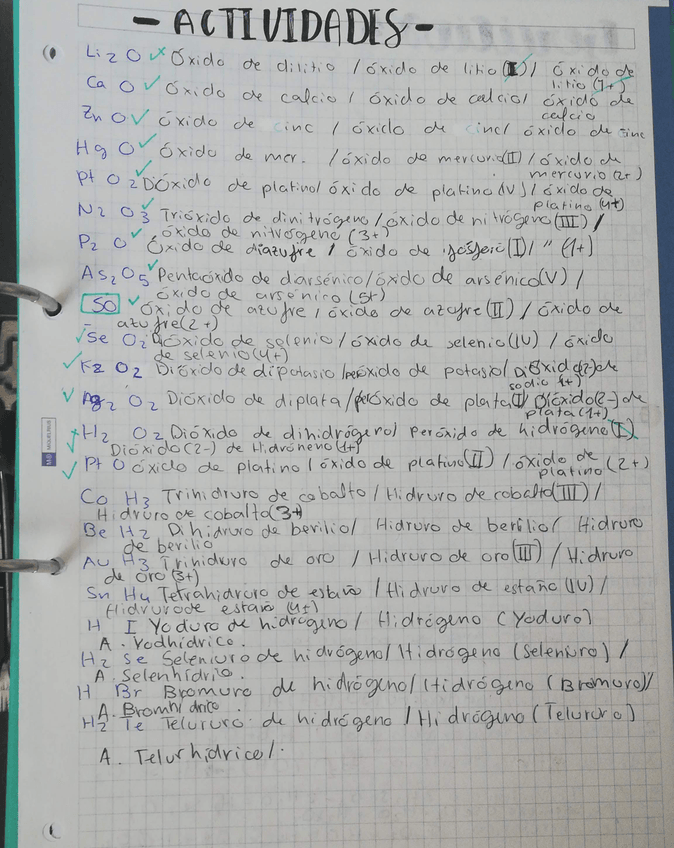 - ACTIVIDADES -
Li2 O Óxido de dilitio / óxido de litio (I) / óxido de
litio (1+)
Ca O Óxido de calcio / óxido de calcio / óxido de
calcio
Zn O óxido de cinc / óxido de cinc / óxido de cinc
Hg O óxido de mer. / óxido de mercurio (II) / óxido de
mercurio (2+)
Pt O2 Dióxido de platino / óxido de platino (IV) / óxido de
platino (4+)
N2 O3 Trióxido de dinitrógeno / óxido de nitrógeno (III) /
óxido de nitrógeno (3+)
P2 O óxido de diazufre / óxido de fósforo (I) / " (1+)
As2 O5 Pentaóxido de diarsénico / óxido de arsénico (V) /
óxido de arsénico (5+)
SO óxido de azufre / óxido de azufre (II) / óxido de
azufre (2+)
Se O2 Dióxido de selenio / óxido de selenio (IV) / óxido
de selenio (4+)
K2 O2 Dióxido de dipotasio / peróxido de potasio / Dióxid (2-) de
sodio (1+)
Ag2 O2 Dióxido de diplata / peróxido de plata (I) / Dióxido (2-) de
plata (1+)
H2 O2 Dióxido de dihidrógeno / Peróxido de hidrógeno (I)
Dióxido (2-) de Hidrógeno (1+)
Pt O óxido de platino / óxido de platino (II) / óxido de
platino (2+)
Co H3 Trihidruro de cobalto / Hidruro de cobalto (III) /
Hidruro de cobalto (3+)
Be H2 Dihidruro de berilio / Hidruro de berilio / Hidruro
de berilio
Au H3 Trihidruro de oro / Hidruro de oro (III) / Hidruro
de oro (3+)
Sn H4 Tetrahidruro de estaño / Hidruro de estaño (IV) /
Hidruro de estaño (4+)
H I Yoduro de hidrógeno / Hidrógeno (Yoduro)
A. Yodhídrico.
H2 Se Seleniuro de hidrógeno / Hidrógeno (Seleniuro) /
A. Selenhídrico.
H Br Bromuro de hidrógeno / Hidrógeno (Bromuro) /
A. Bromhídrico.
H2 Te Telururo de hidrógeno / Hidrógeno (Telururo)
A. Telurhídrico /.